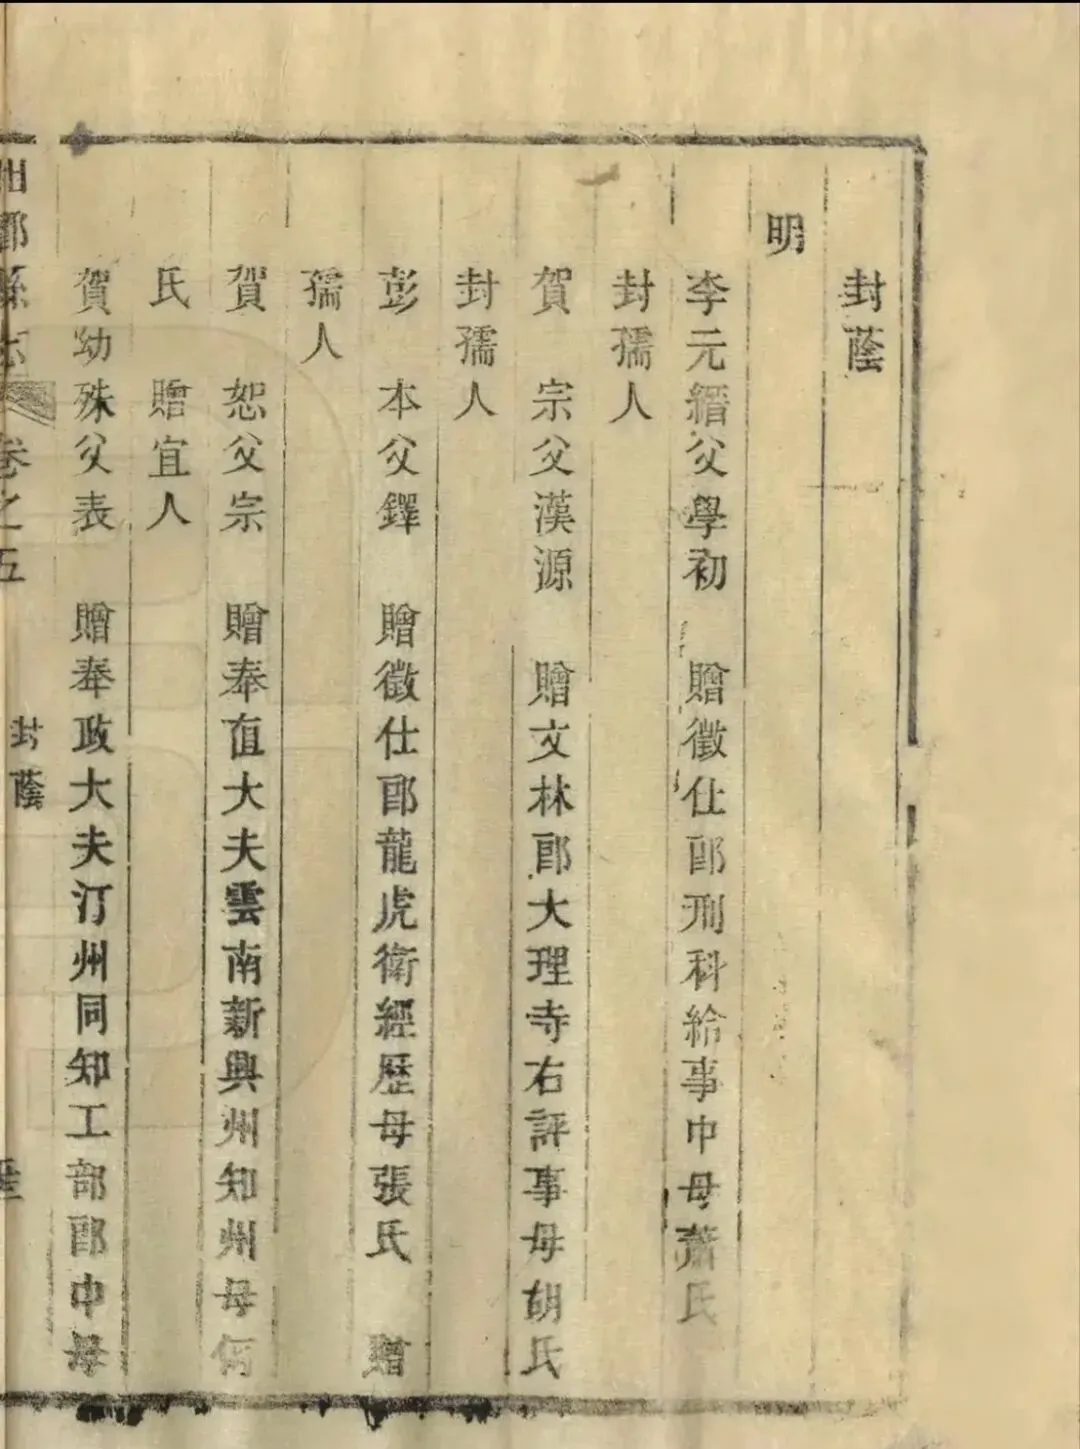 封蔭
明
李元縉父學初　贈徵仕郎刑科給事中母蕭氏
封孺人
賀　宗父漢源　贈文林郎大理寺右評事母胡氏
封孺人
彭　本父鐸　贈徵仕郎龍虎衛經歷母張氏　贈
孺人
賀　恕父宗　贈奉直大夫雲南新興州知州母何
氏　贈宜人
賀幼殊父表　贈奉政大夫汀州同知工部郎中母
縣志　卷之五　封蔭